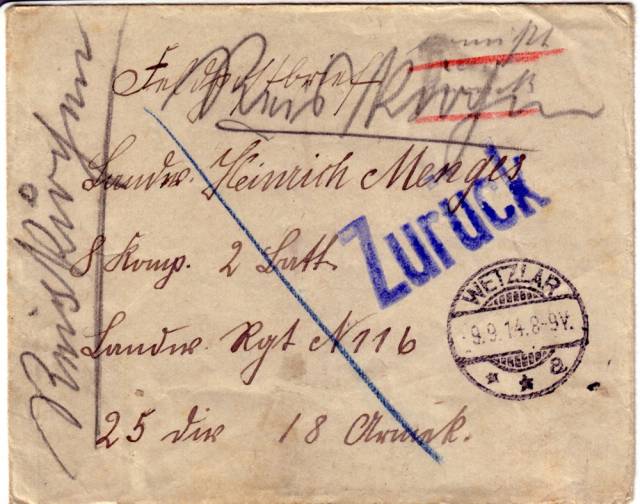 Feldpostbrief
vermißt
zurück
Reiskirchen
Landw. Heinrich Menges
8 Komp. 2 Batt.
Landw. Rgt N 116
25 div 18 Armek.
Zurück
WETZLAR
9.9.14.8-9V.
* * a
Reiskirchen